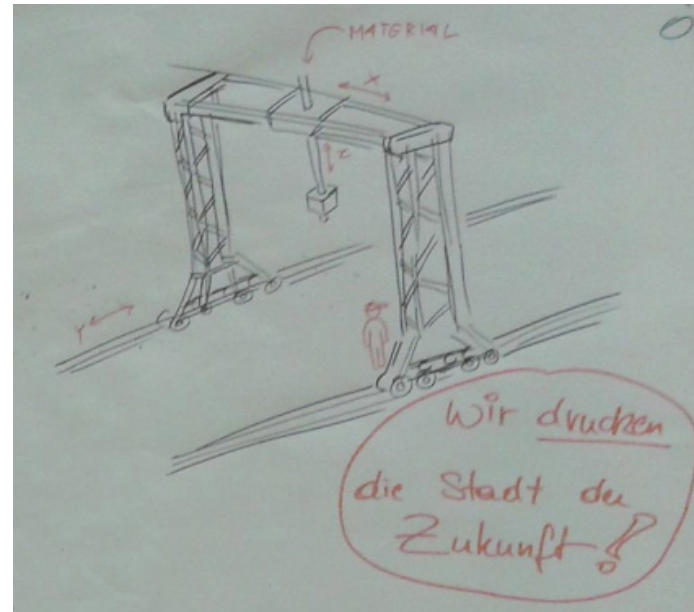 MATERIAL
X
Z
Y
Wir drucken
die Stadt der
Zukunft!